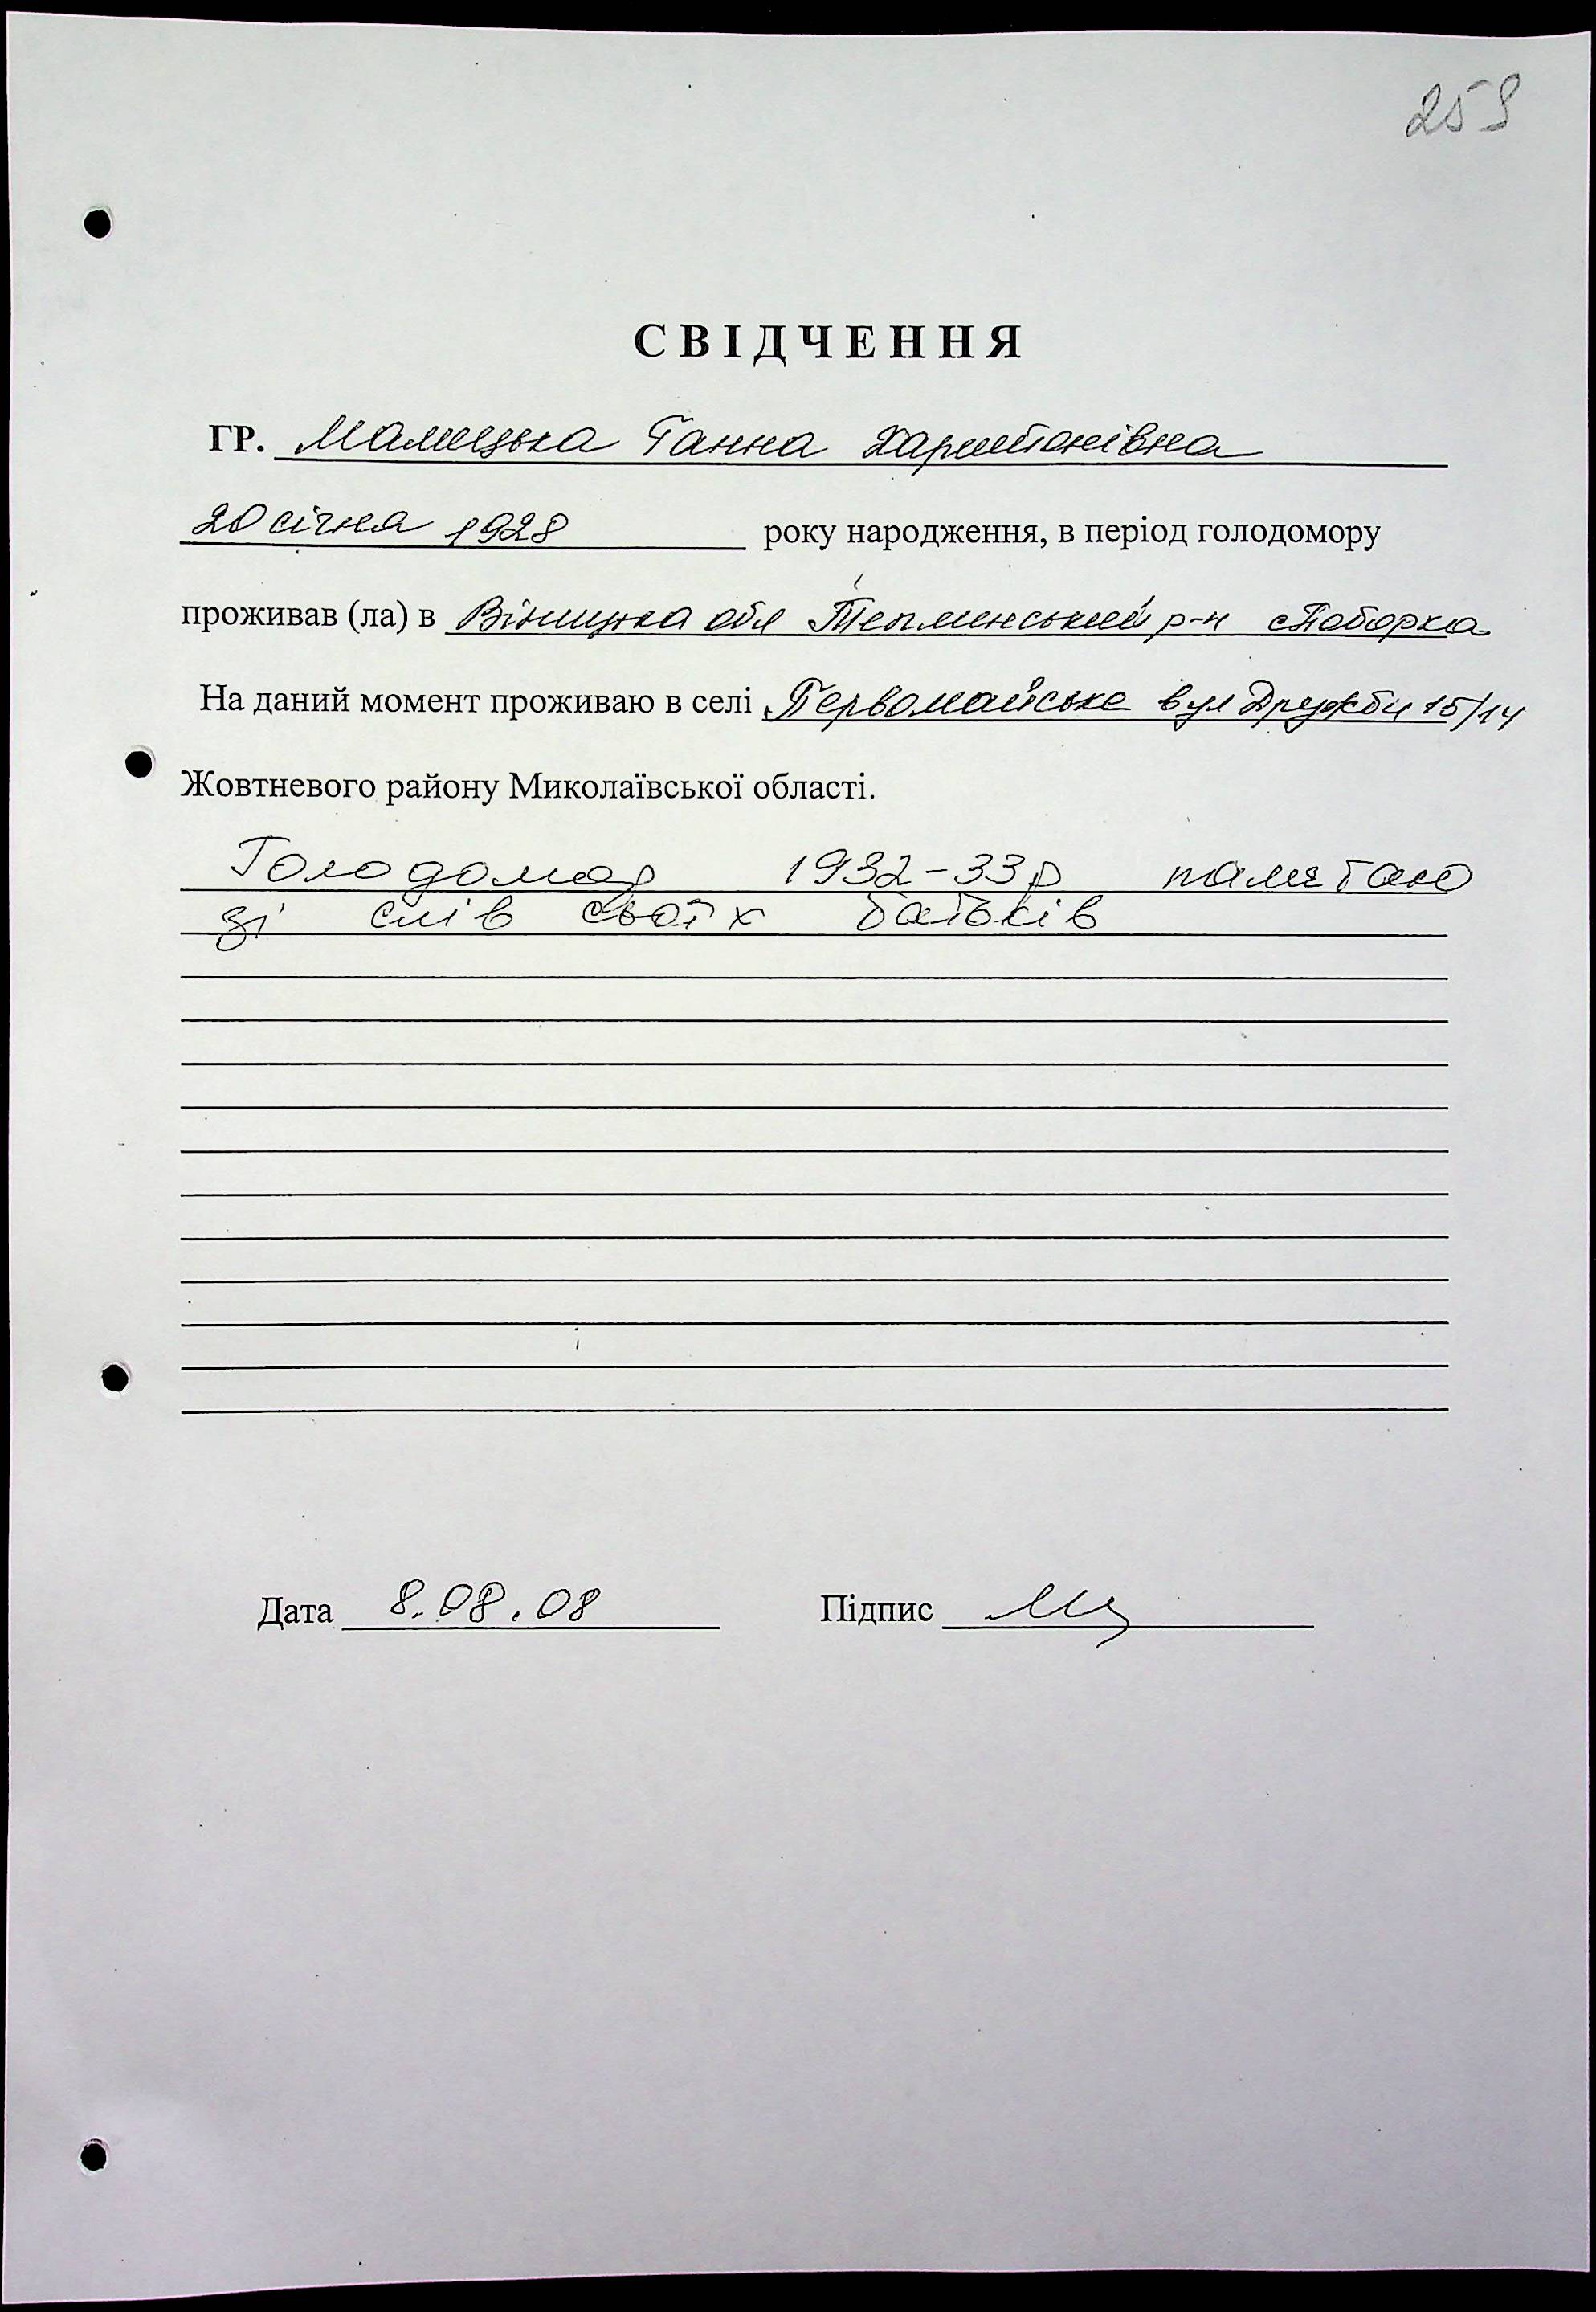 259
СВІДЧЕННЯ
ГР. Малицька Ганна Харитонівна
20 січня 1928 року народження, в період голодомору
проживав (ла) в Віницька обл Тепликський р-н с Поборка
На даний момент проживаю в селі Первомайське вул Дружби 15/14
Жовтневого району Миколаївської області.
Голодомор 1932-33р паметаю
зі слів своїх батьків
Дата 8.08.08 Підпис